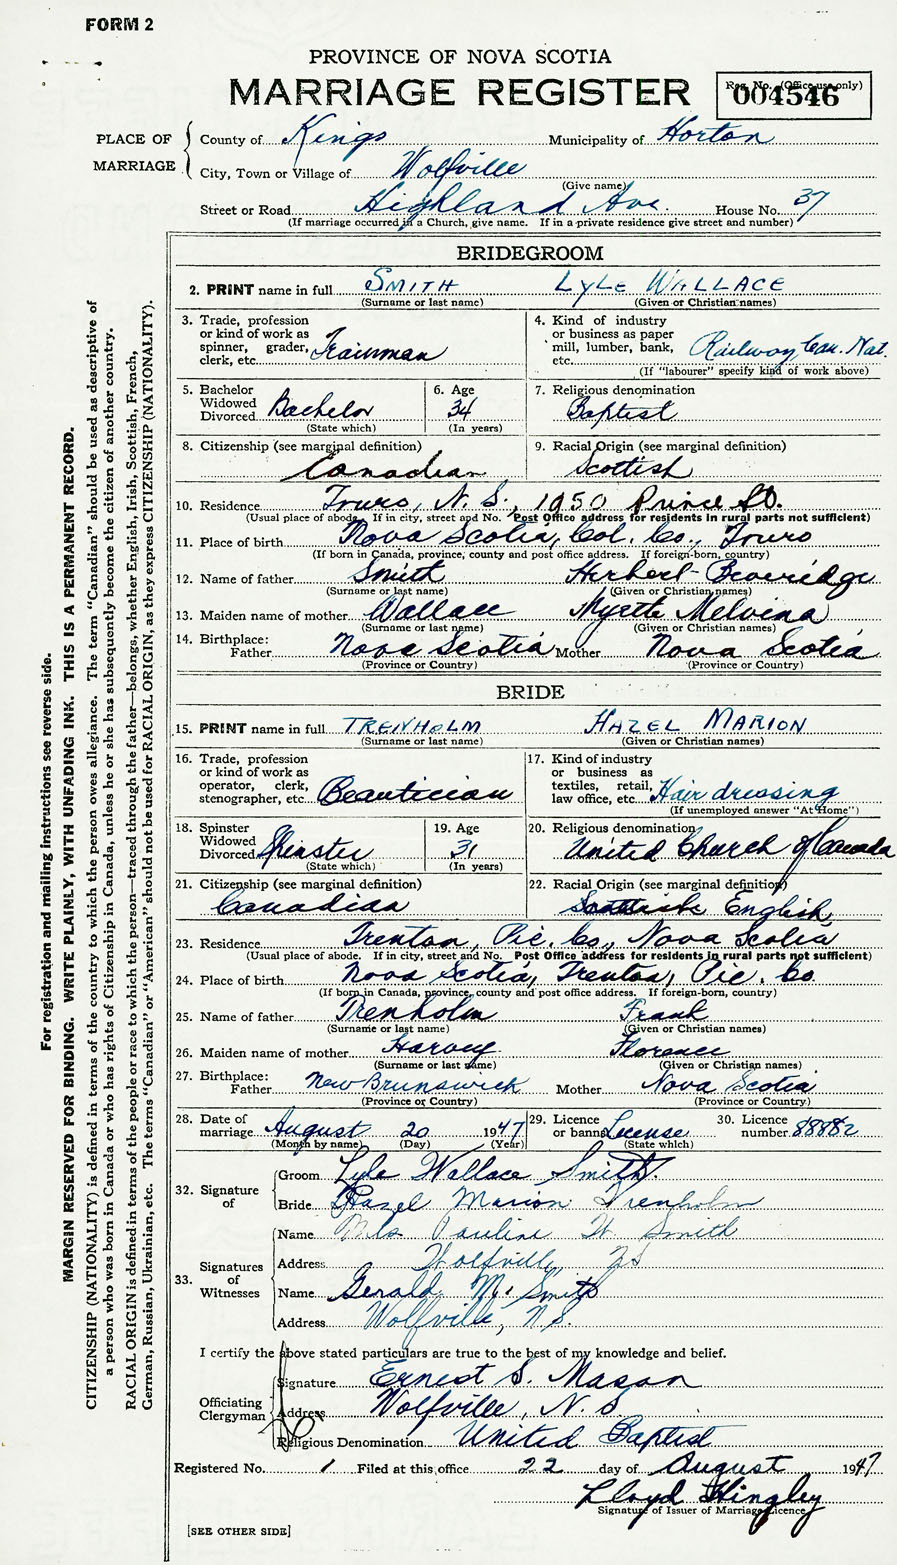 FORM 2
PROVINCE OF NOVA SCOTIA
MARRIAGE REGISTER
Reg. No. (Office use only)
004546
PLACE OF MARRIAGE
County of Kings Municipality of Horton
City, Town or Village of Wolfville
(Give name)
Street or Road Highland Ave. House No. 37
(If marriage occurred in a Church, give name. If in a private residence give street and number)
BRIDEGROOM
2. PRINT name in full SMITH LYLE WALLACE
(Surname or last name) (Given or Christian names)
3. Trade, profession or kind of work as spinner, grader, clerk, etc. Trainman
4. Kind of industry or business as paper mill, lumber, bank, etc. Railway, Can. Nat.
(If "labourer" specify kind of work above)
5. Bachelor Widowed Divorced Bachelor
(State which)
6. Age 34
(In years)
7. Religious denomination
Baptist
8. Citizenship (see marginal definition)
Canadian
9. Racial Origin (see marginal definition)
Scottish
10. Residence Truro, N. S., 1950 Prince St.
(Usual place of abode. If in city, street and No. Post Office address for residents in rural parts not sufficient)
11. Place of birth Nova Scotia, Col. Co., Truro
(If born in Canada, province, county and post office address. If foreign-born, country)
12. Name of father Smith Herbert Beveridge
(Surname or last name) (Given or Christian names)
13. Maiden name of mother Wallace Myrtle Melvina
(Surname or last name) (Given or Christian names)
14. Birthplace:
Father Nova Scotia Mother Nova Scotia
(Province or Country) (Province or Country)
BRIDE
15. PRINT name in full TRENHOLM HAZEL MARION
(Surname or last name) (Given or Christian names)
16. Trade, profession or kind of work as operator, clerk, stenographer, etc. Beautician
17. Kind of industry or business as textiles, retail, law office, etc. Hair dressing
(If unemployed answer "At Home")
18. Spinster Widowed Divorced Spinster
(State which)
19. Age 31
(In years)
20. Religious denomination
United Church of Canada
21. Citizenship (see marginal definition)
Canadian
22. Racial Origin (see marginal definition)
English
23. Residence Trenton, Pic. Co., Nova Scotia
(Usual place of abode. If in city, street and No. Post Office address for residents in rural parts not sufficient)
24. Place of birth Nova Scotia, Trenton, Pic. Co.
(If born in Canada, province, county and post office address. If foreign-born, country)
25. Name of father Trenholm Frank
(Surname or last name) (Given or Christian names)
26. Maiden name of mother Harvey Florence
(Surname or last name) (Given or Christian names)
27. Birthplace:
Father New Brunswick Mother Nova Scotia
(Province or Country) (Province or Country)
28. Date of marriage August 20 1947
(Month by name) (Day) (Year)
29. Licence or banns License
(State which)
30. Licence number 88882
32. Signature of
Groom Lyle Wallace Smith.
Bride Hazel Marion Trenholm
33. Signatures of Witnesses
Name Mrs Pauline H. Smith
Address Wolfville NS
Name Gerald M. Smith
Address Wolfville, N.S.
I certify the above stated particulars are true to the best of my knowledge and belief.
Officiating Clergyman
Signature Ernest S. Mason
Address Wolfville, N. S
Religious Denomination United Baptist
Registered No. 1 Filed at this office 22 day of August 1947
Lloyd Hingley
Signature of Issuer of Marriage Licence
[SEE OTHER SIDE]
For registration and mailing instructions see reverse side.
MARGIN RESERVED FOR BINDING. WRITE PLAINLY, WITH UNFADING INK. THIS IS A PERMANENT RECORD.
CITIZENSHIP (NATIONALITY) is defined in terms of the country to which the person owes allegiance. The term "Canadian" should be used as descriptive of
a person who was born in Canada or who has rights of Citizenship in Canada, unless he or she has subsequently become the citizen of another country.
RACIAL ORIGIN is defined in terms of the people or race to which the person—traced through the father—belongs, whether English, Irish, Scottish, French,
German, Russian, Ukrainian, etc. The terms "Canadian" or "American" should not be used for RACIAL ORIGIN, as they express CITIZENSHIP (NATIONALITY).